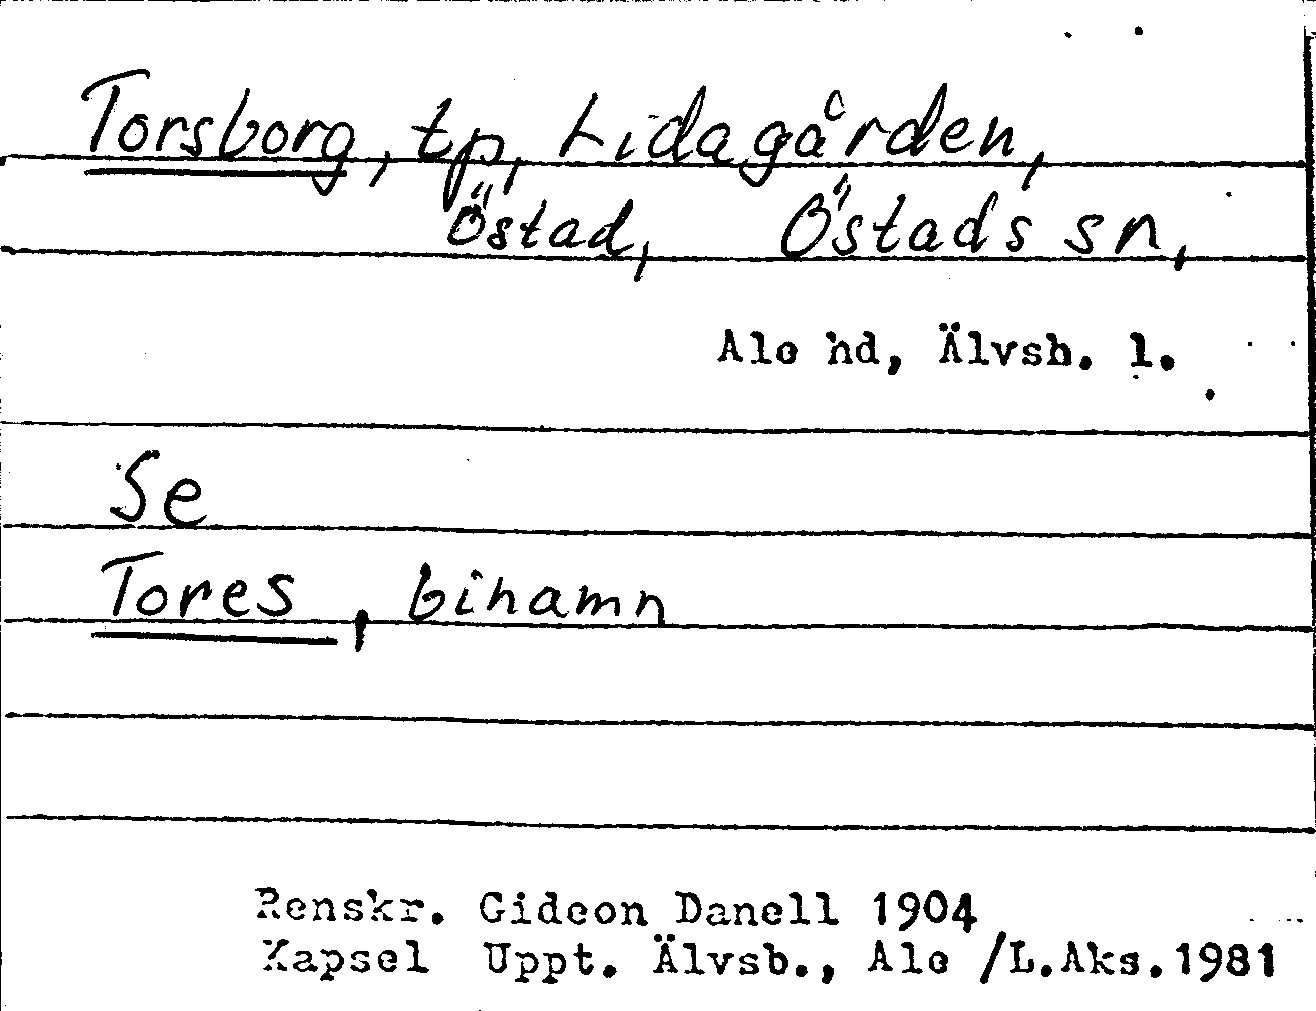 Torsborg, tp, Lidagården,
Östad, Östads sn,
Ale hd, Älvsb. l.
Se
Tores, binamn
Renskr. Gideon Danell 1904
Kapsel Uppt. Älvsb., Ale /L.Aks.1981